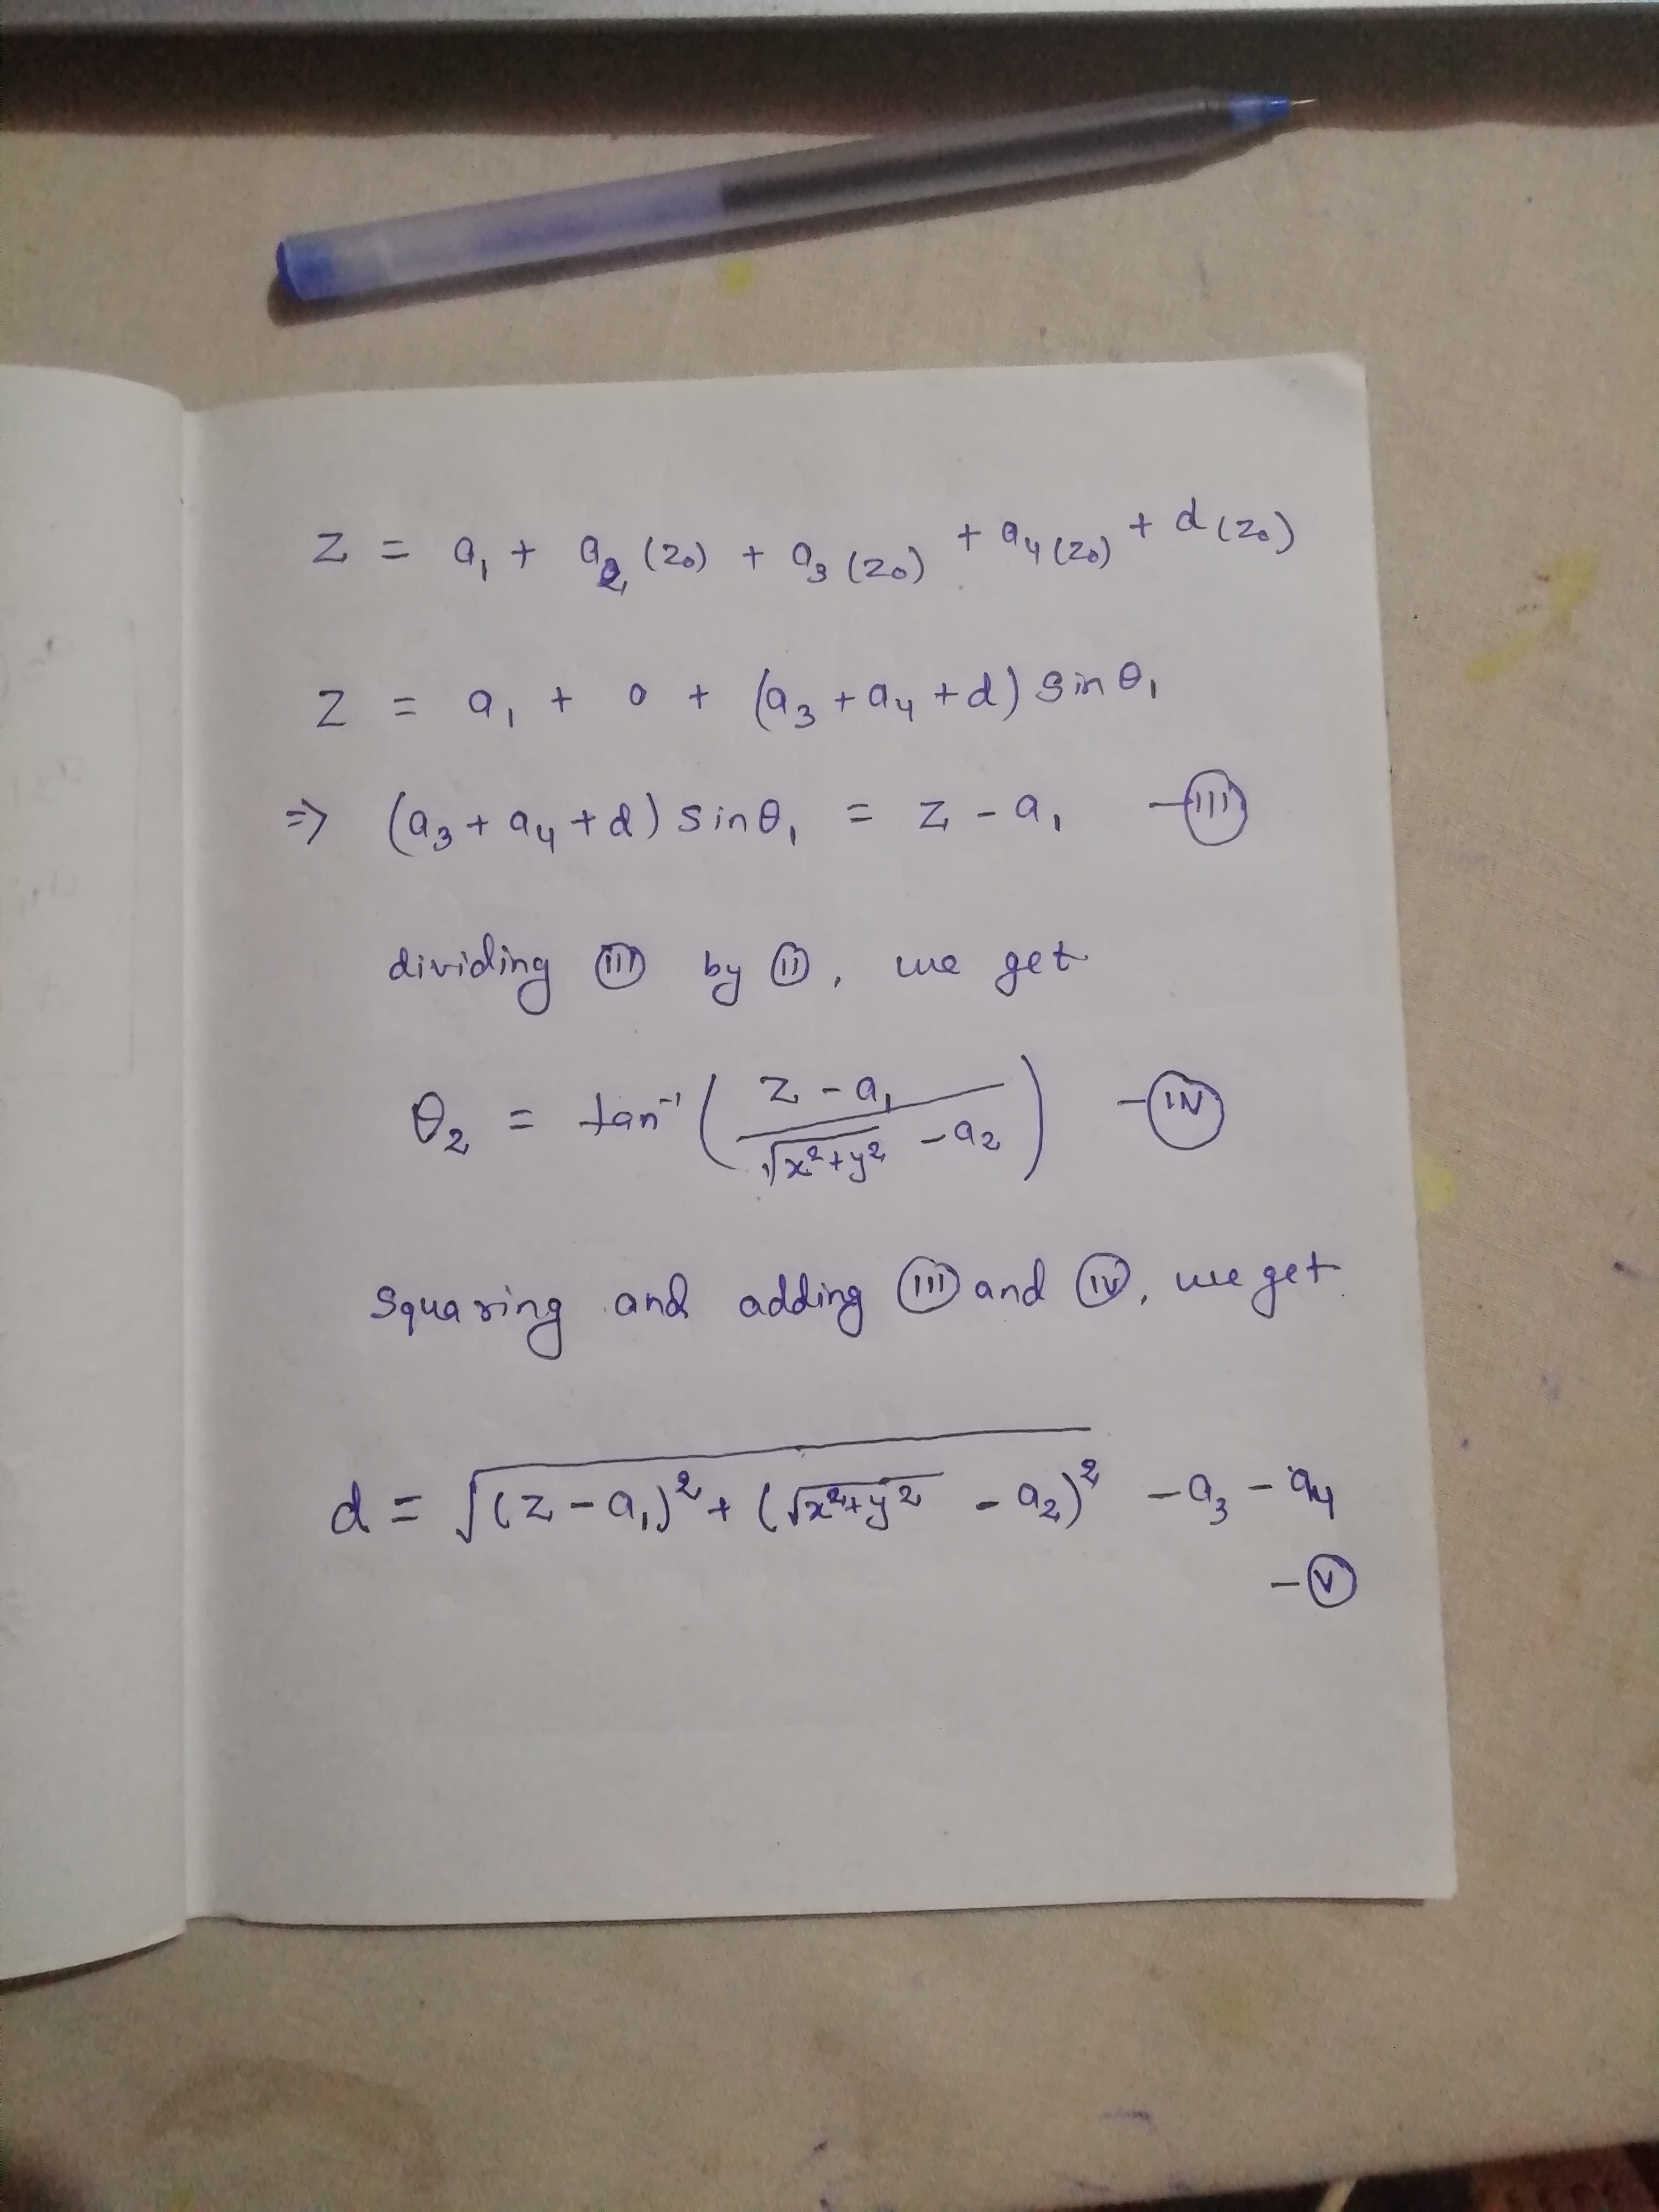 z = a₁ + a₂(z₀) + a₃(z₀) + a₄(z₀) + d(z₀)
z = a₁ + 0 + (a₃ + a₄ + d) sin θ₁
⇒ (a₃ + a₄ + d) sin θ₁ = z - a₁ - (III)
dividing (III) by (II), we get
θ₂ = tan⁻¹ ( (z - a₁) / (√(x² + y²) - a₂) ) - (IV)
squaring and adding (III) and (IV), we get
d = √((z - a₁)² + (√(x² + y²) - a₂)²) - a₃ - a₄
- (V)